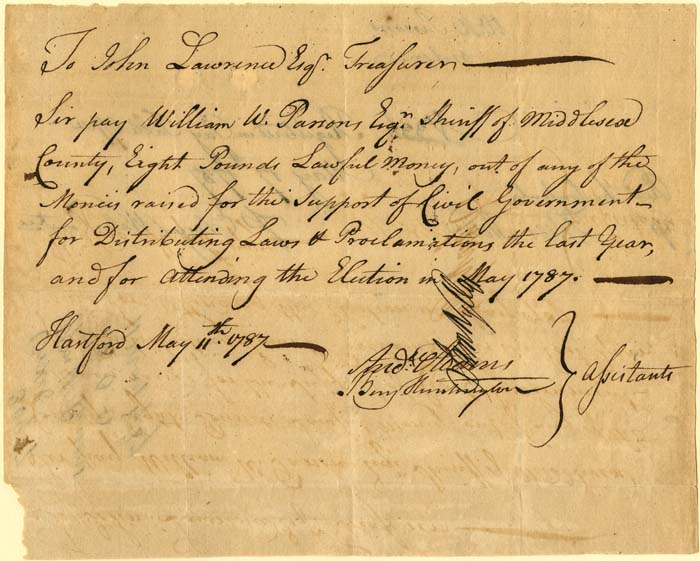 To John Lawrence Esqr. Treasurer
Sir pay William W. Parsons Esqr. Sheriff of Middlesex
County, Eight Pounds Lawful Money, out of any of the
Monies raised for the Support of Civil Government
for Distributing Laws & Proclamations the last Year,
and for attending the Election in May 1787.
Hartford May 11th. 1787
Andw. Adams
Benj Huntington
Assistants